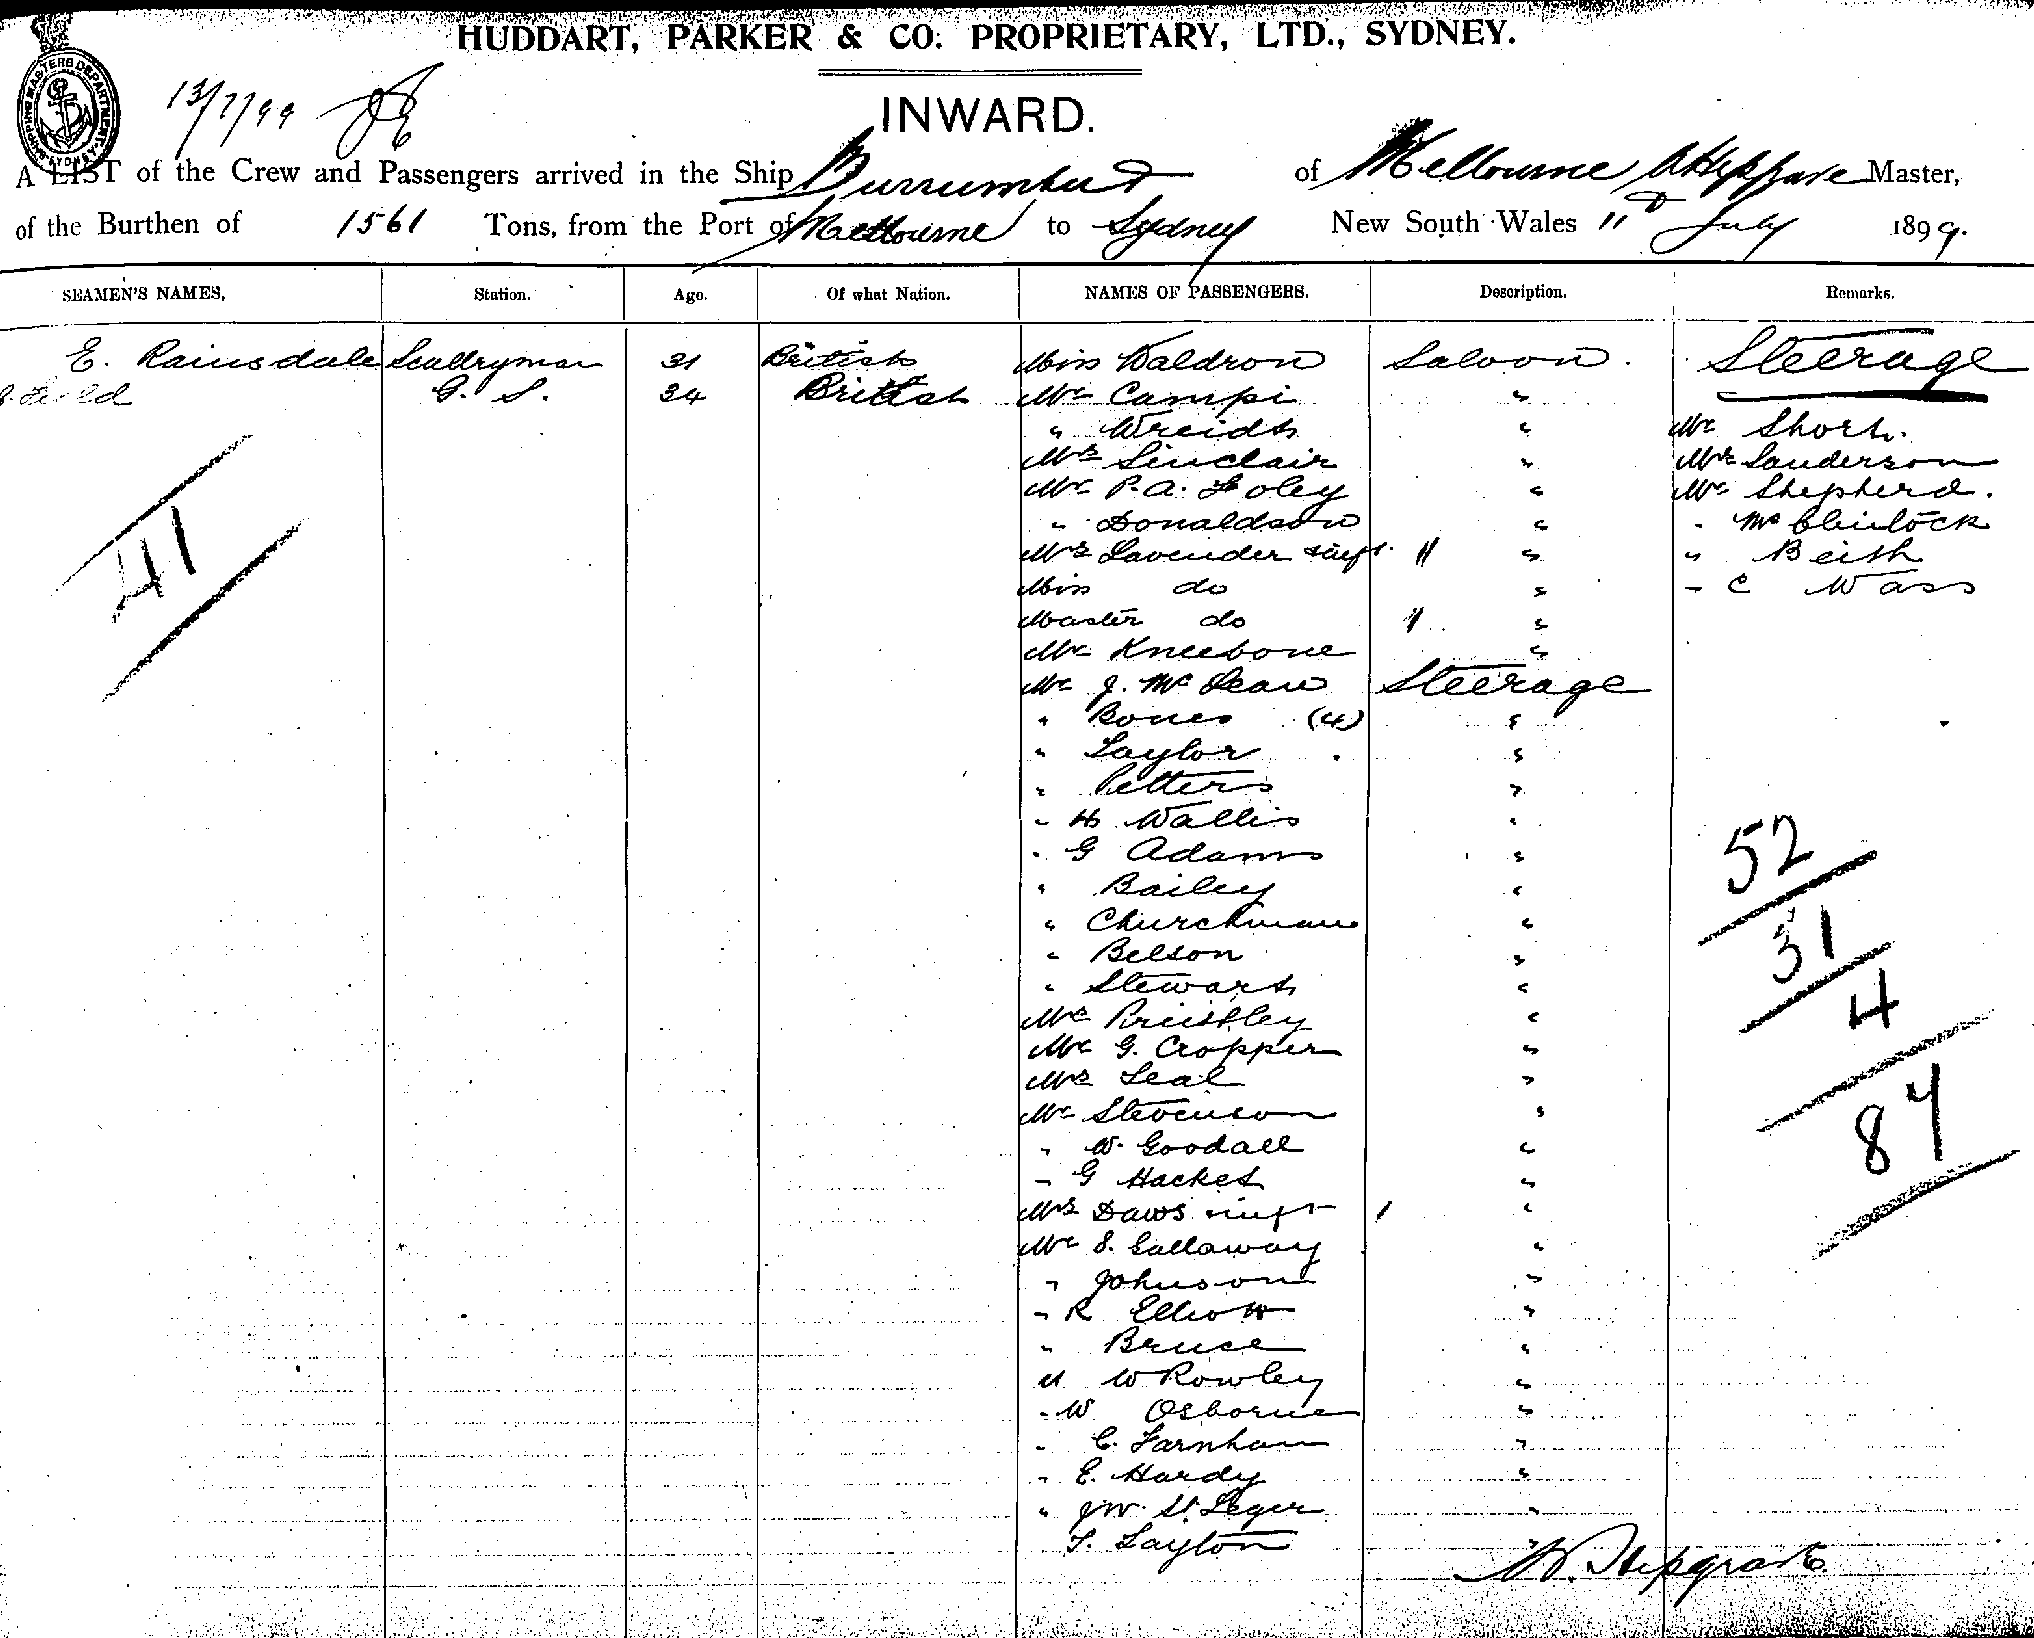 HUDDART, PARKER & CO. PROPRIETARY, LTD., SYDNEY.
SHIPPING MASTERS DEPARTMENT SYDNEY
13/7/99
INWARD.
A LIST of the Crew and Passengers arrived in the Ship Burrumbeet of Melbourne Master,
of the Burthen of 1561 Tons, from the Port of Melbourne to Sydney New South Wales 11th July 1899.
SEAMEN'S NAMES, Station. Age. Of what Nation. NAMES OF PASSENGERS. Description. Remarks.
E. Rainsdale Scullryman 31 British Miss Waldron Saloon. Steerage
Field G. S. 34 British Mr Campi "
" Wreidt " Mr Short.
Mrs Sinclair " Mrs Sanderson
Mr P. A. Foley " Mr Shepherd.
" Donaldson " " McClintock
Mrs Lavender & inft. 11 " " Beith
Miss do " " C Wass
Master do 11 "
Mr Kneebone "
Mr J. McLean Steerage
" Bones (4) "
" Taylor "
" Petters "
" H Wallis "
" G Adams "
" Bailey "
" Churchman "
" Belson "
" Stewart "
Mrs Priestley "
Mr G. Cropper "
Mrs Leal "
Mr Stevenson "
" W. Goodall "
" G Hacket "
Mrs Daws inft 1 "
Mr S. Gallaway "
" Johnson "
" R Elliott "
" Bruce "
" W Rowley "
" W Osborne "
" C. Farnham "
" E. Hardy "
" J W. St. Leger "
T. Layton "
41
52
31
4
87
W. Hipgrave